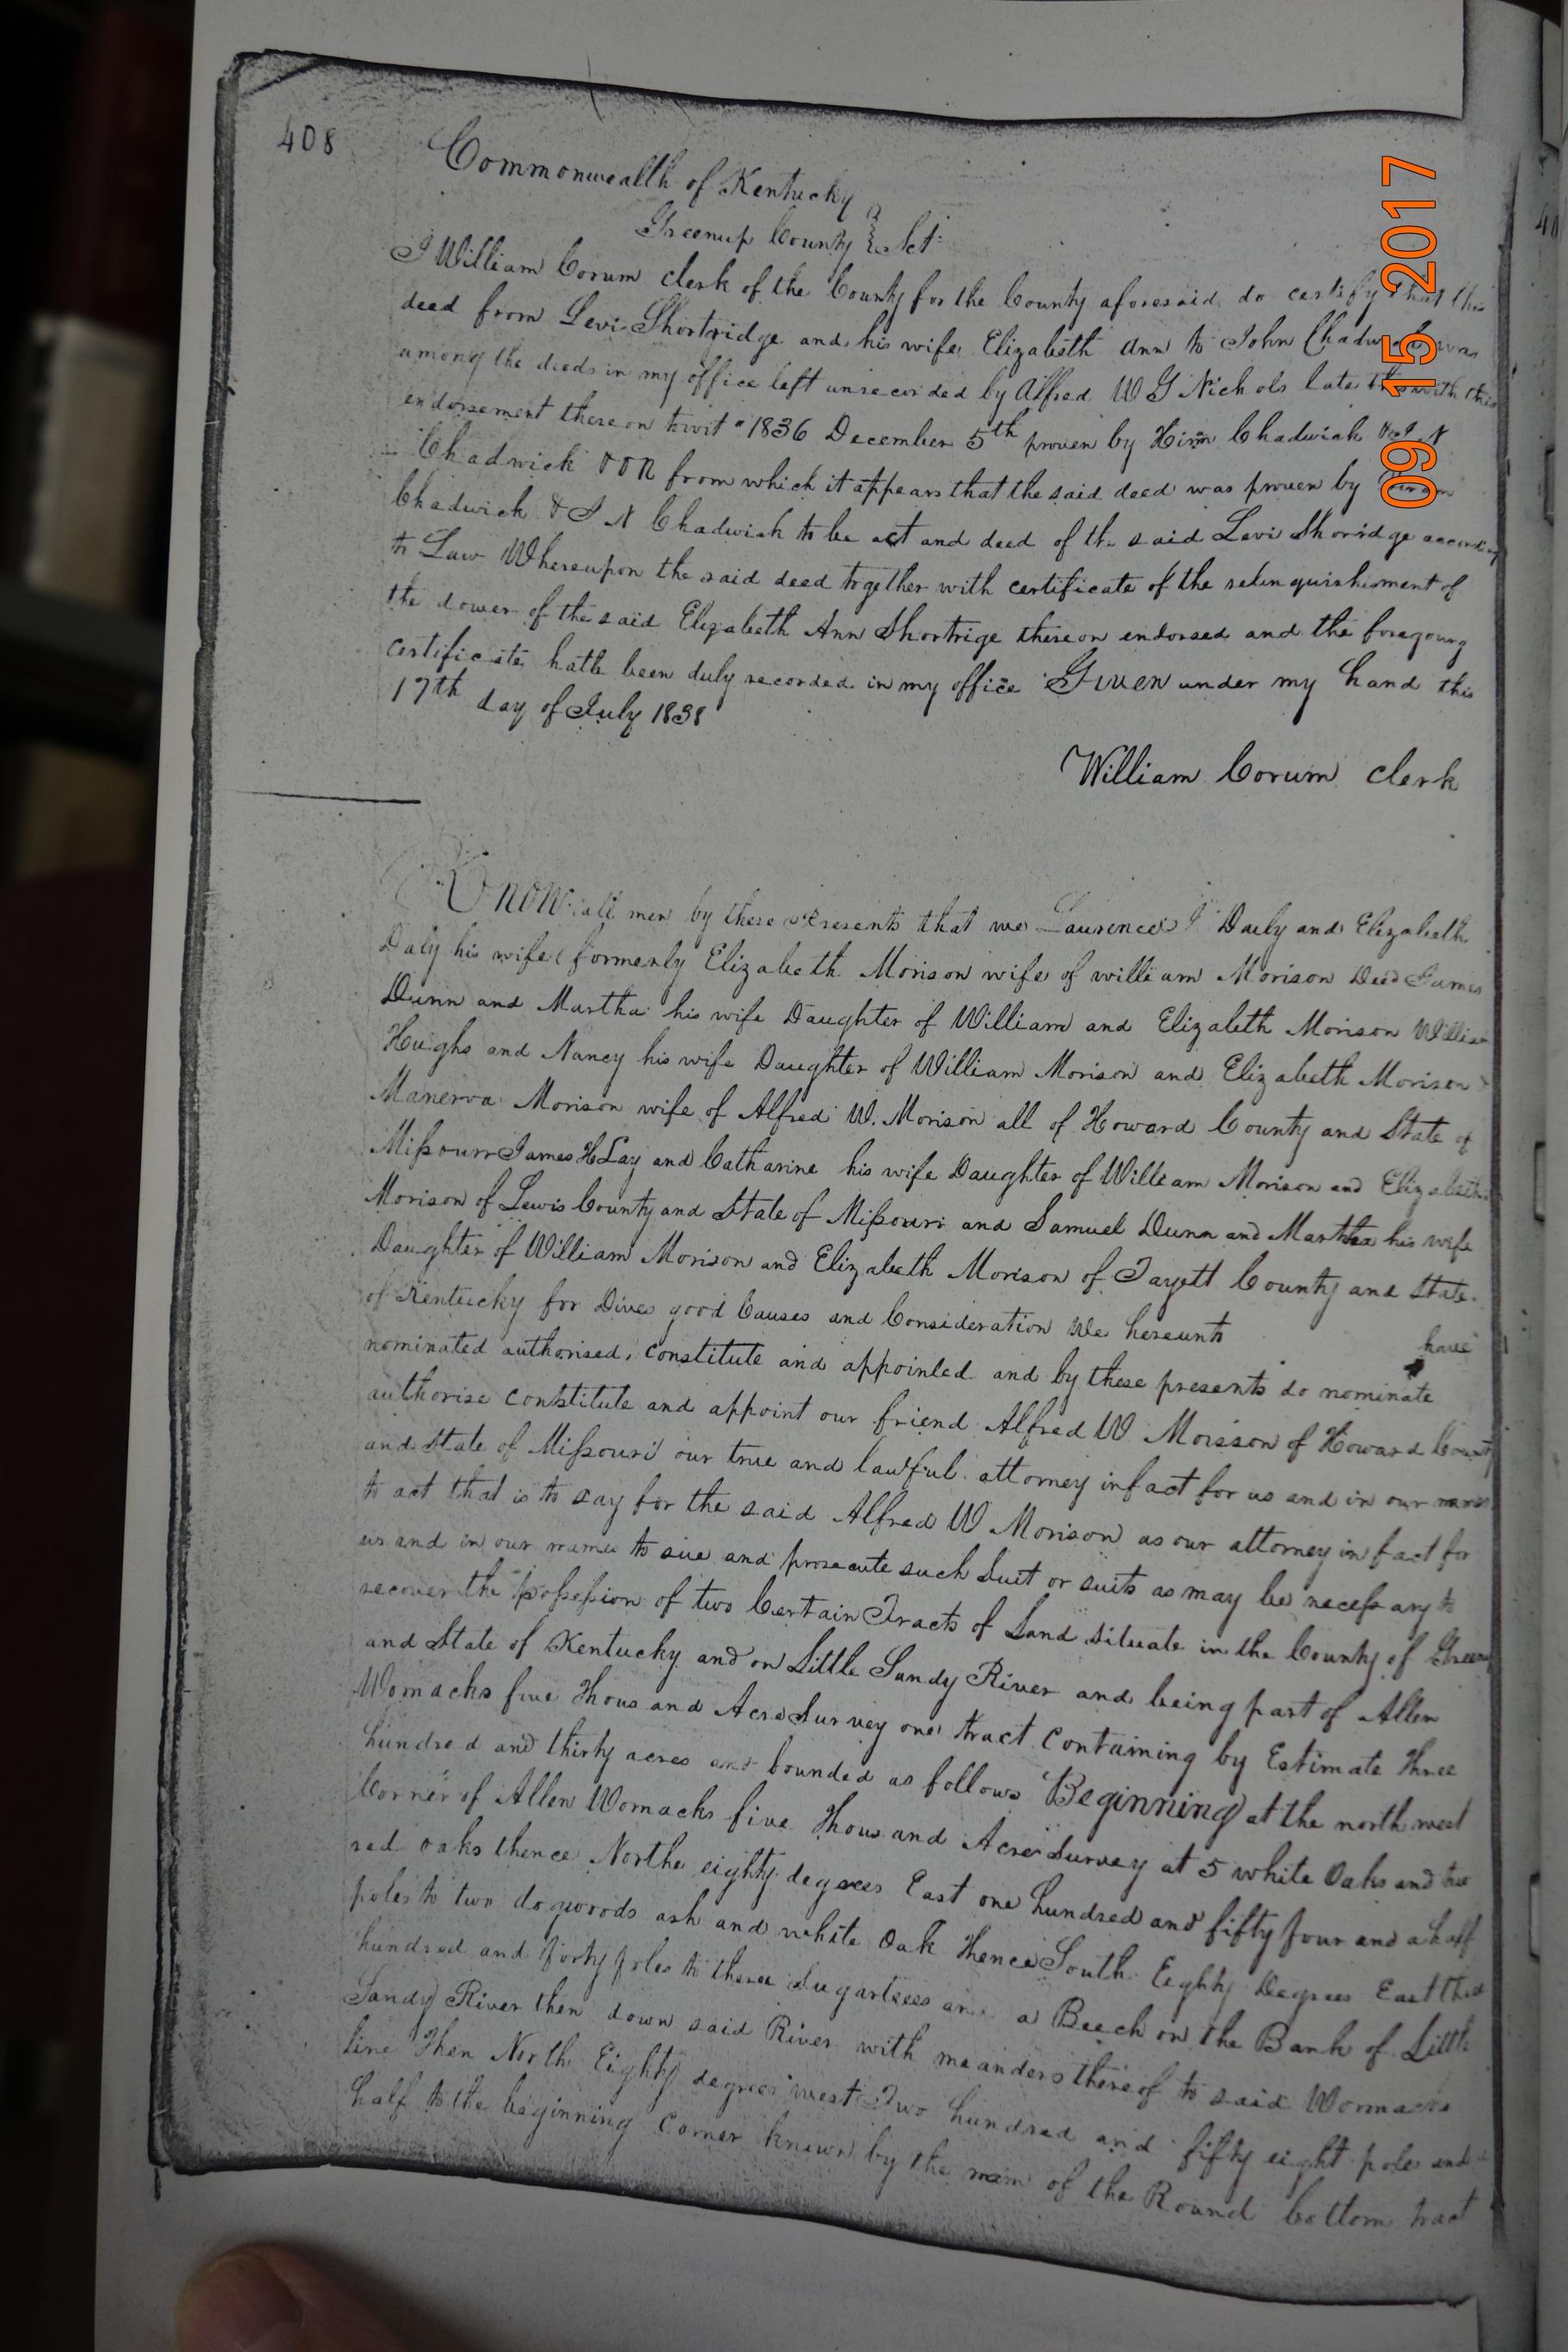 408
Commonwealth of Kentucky
Greenup County Sct
I William Corum clerk of the County for the County aforesaid do certify that this
deed from Levi Shortridge and his wife Elizabeth Ann to John Chadwick was
among the deeds in my office left unrecorded by Alfred W G Nichols late with this
endorsement thereon towit " 1836 December 5th proven by Hirm Chadwick & J N
Chadwick from which it appears that the said deed was proven by Hiram
Chadwick & J N Chadwick to be act and deed of the said Levi Shoridge according
to Law Whereupon the said deed together with certificate of the relinquishisment of
the dower of the said Elizabeth Ann Shortrige thereon endorsed and the foregoing
certificate hath been duly recorded in my office Given under my hand this
17th day of July 1838
William Corum Clerk
Know all men by these Presents that we Laurence J Daily and Elizabeth
Daly his wife (formerly Elizabeth Morison wife of william Morison Deed James
Dunn and Martha his wife Daughter of William and Elizabeth Morison William
Hughs and Nancy his wife Daughter of William Morison and Elizabeth Morison &
Manerva Morison wife of Alfred W. Morison all of Howard County and State of
Missouri James H Lay and Catharine his wife Daughter of William Morison and Elizabeth
Morison of Lewis County and State of Missouri and Samuel Dunn and Martha his wife
Daughter of William Morison and Elizabeth Morison of Fayett County and State
of Kentucky for Dives good Causes and Consideration We hereunto have
nominated authorised, constitute and appointed and by these presents do nominate
authorise constitute and appoint our friend Alfred W Morison of Howard County
and State of Missouri our true and lawful attorney in fact for us and in our names
to act that is to say for the said Alfred W Morison as our attorney in fact for
us and in our names to sue and prosecute such Suit or suits as may be necessary to
recover the possession of two Certain Tracts of Land situate in the County of Greenup
and State of Kentucky and on Little Sandy River and being part of Allen
Womacks five Thousand Acre Survey one tract Containing by Estimate three
hundred and thirty acres and bounded as follows Beginning at the north west
Corner of Allen Womacks five Thousand Acre Survey at 5 white Oaks and two
red oaks thence North eighty degrees East one hundred and fifty four and a half
poles to two dogwoods ash and white Oak Thence South Eighty Degrees East three
hundred and forty poles to three Sugartrees and a Beech on the Bank of Little
Sandy River then down said River with meanders thereof to said Wormacks
line Then North Eighty degrees west Two hundred and fifty eight pole and a
half to the beginning Corner known by the name of the Round bottom tract
09 15 2017